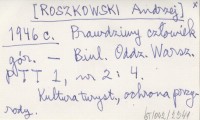 [ROSZKOWSKI Andrzej]
1946 c. Prawdziwy człowiek
gór. – Biul. Oddz. Warsz.
PTT 1, nr 2: 4.
Kultura turyst., ochrona przy-
rody.